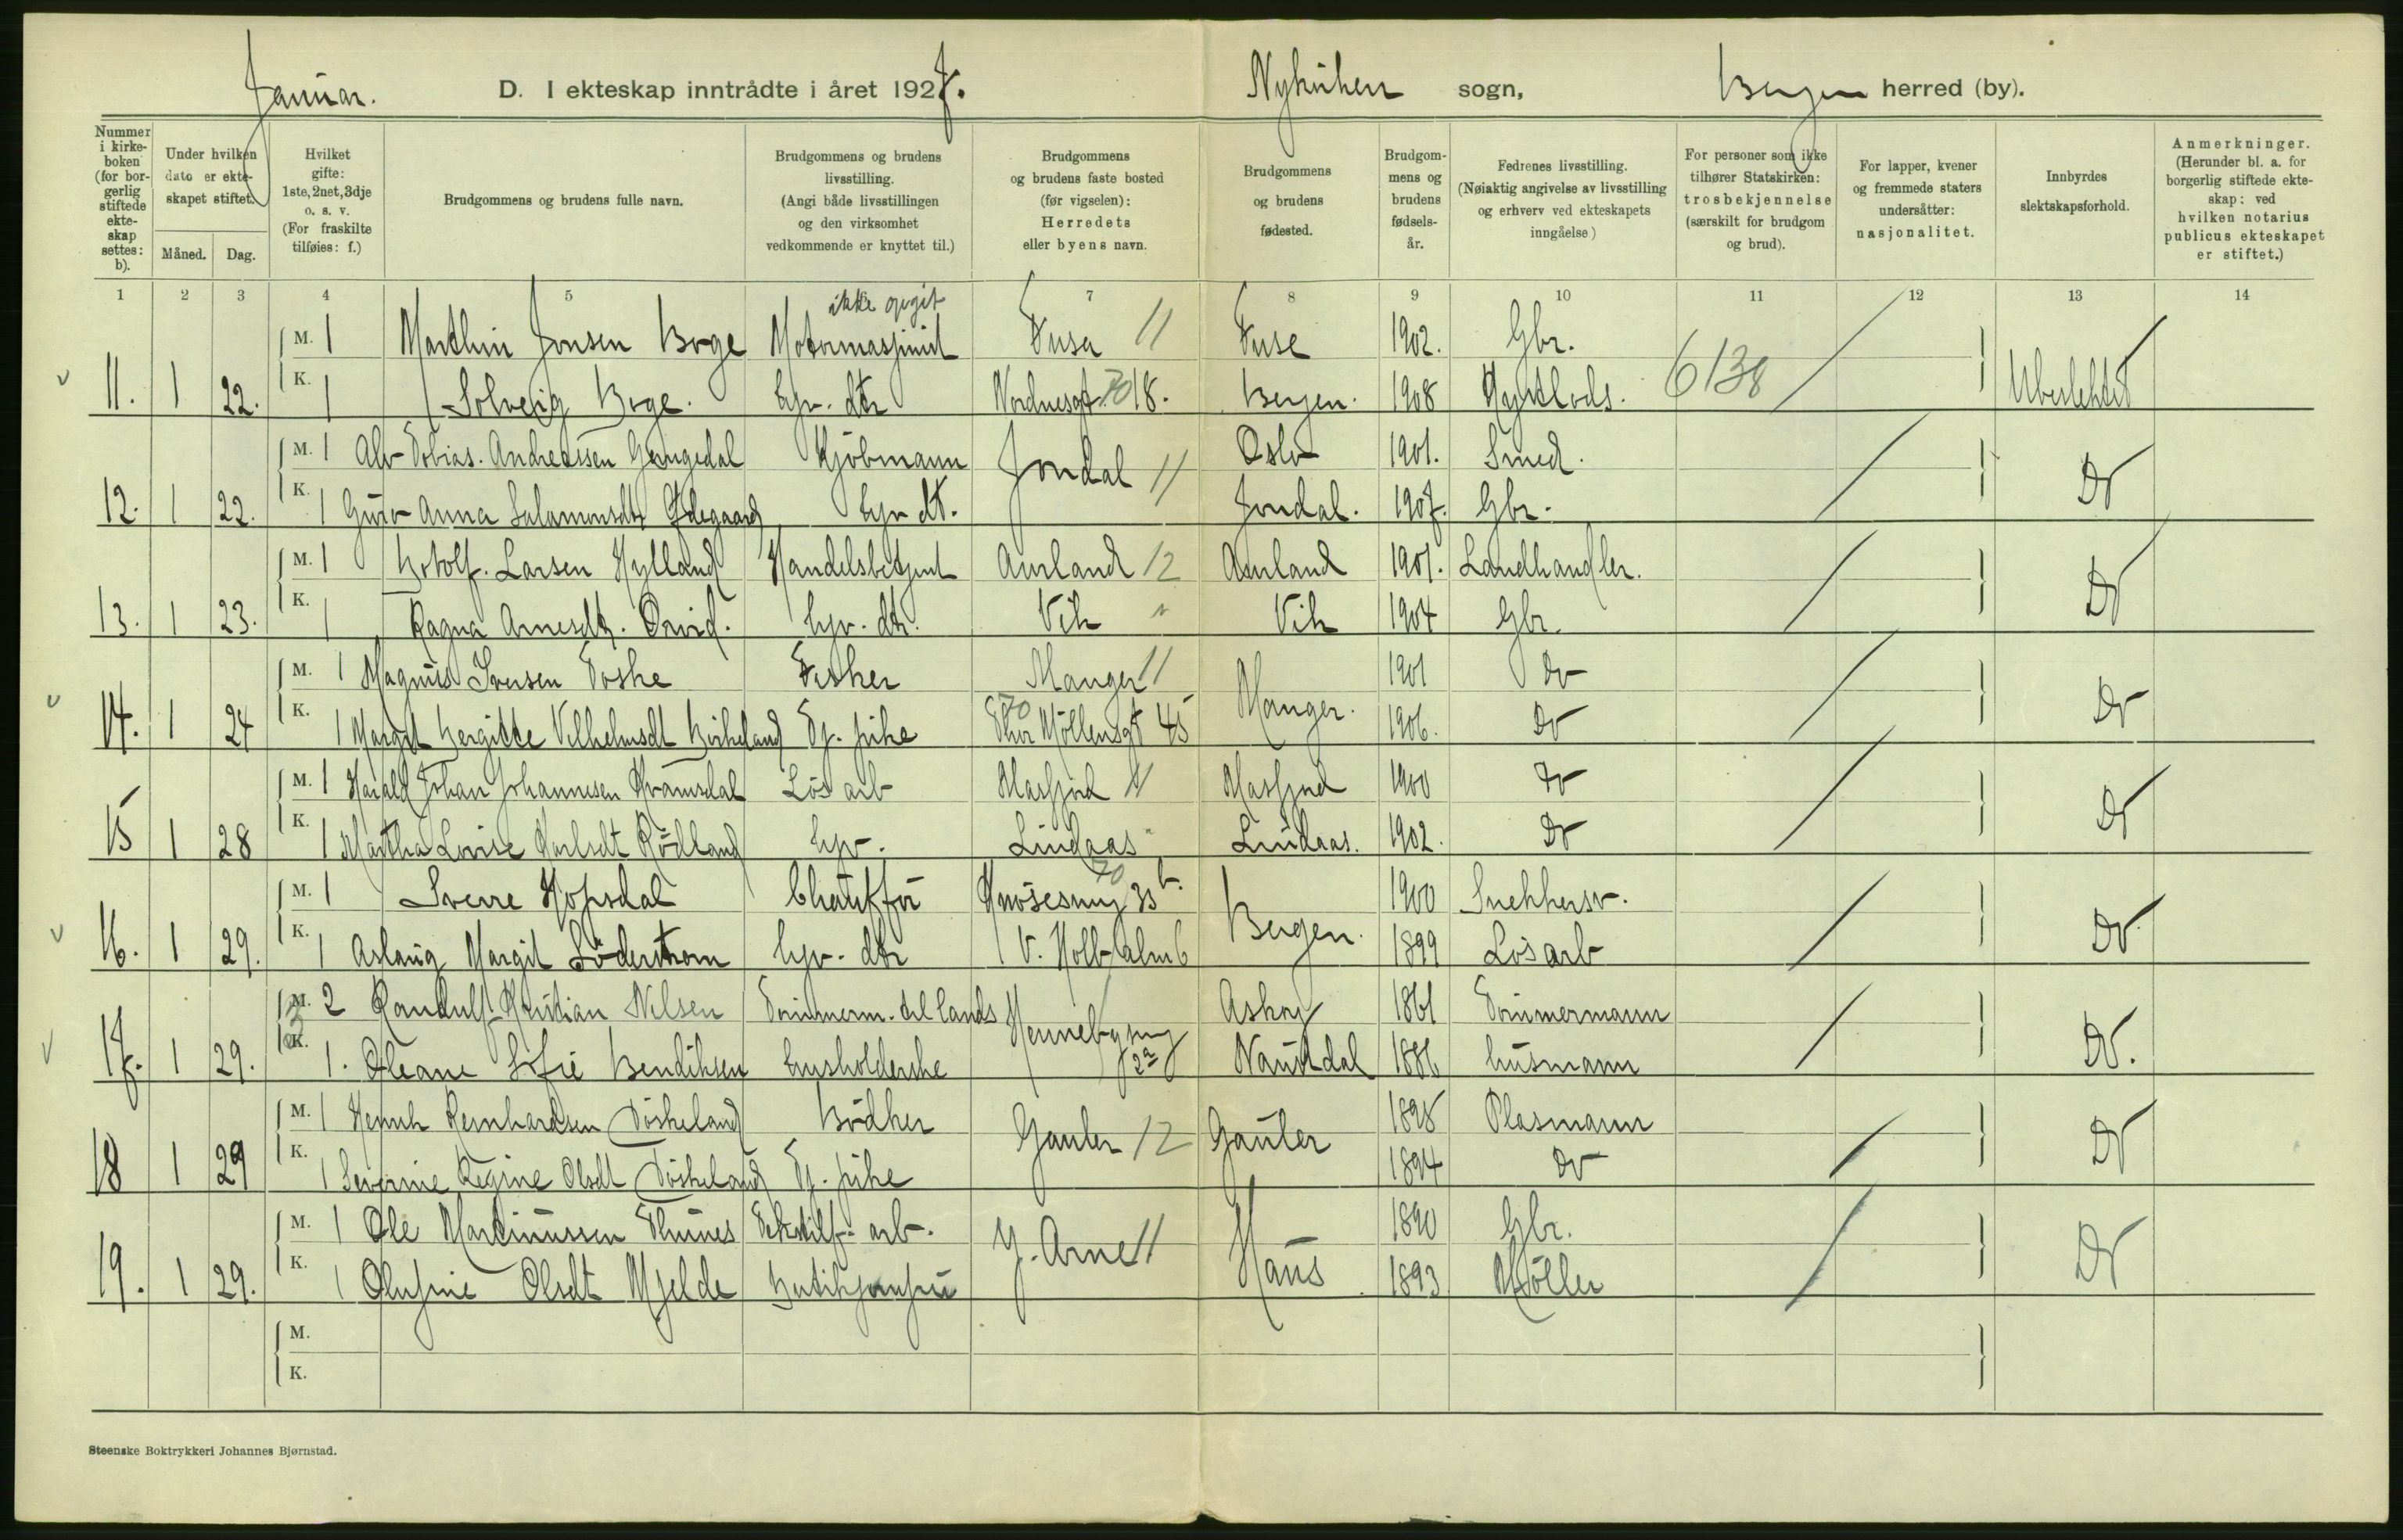 Januar. D. I ekteskap inntrådte i året 1927. Nykirken sogn, Bergen herred (by).
Nummer i kirkeboken (for borgerlig stiftede ekteskap settes: b).
Under hvilken dato er ekteskapet stiftet.
Måned. Dag.
Hvilket gifte: 1ste, 2net, 3dje o. s. v. (For fraskilte tilføies: f.)
Brudgommens og brudens fulle navn.
Brudgommens og brudens livsstilling. (Angi både livsstillingen og den virksomhet vedkommende er knyttet til.)
Brudgommens og brudens faste bosted (før vigselen): Herredets eller byens navn.
Brudgommens og brudens fødested.
Brudgommens og brudens fødselsår.
Fedrenes livsstilling. (Nøiaktig angivelse av livsstilling og erhverv ved ekteskapets inngåelse)
For personer som ikke tilhører Statskirken: trosbekjennelse (særskilt for brudgom og brud).
For lapper, kvener og fremmede staters undersåtter: nasjonalitet.
Innbyrdes slektskapsforhold.
Anmerkninger. (Herunder bl. a. for borgerlig stiftede ekteskap: ved hvilken notarius publicus ekteskapet er stiftet.)
1 2 3 4 5 7 8 9 10 11 12 13 14
ikke opgit
M. 1 Marthin Jonsen Boge Motormasjinist Fusa 11 Fuse 1902. Gbr.
11. 1 22. K. 1 Solveig Boge. hjv. dtr Nordnesgt. 70 18. Bergen. 1908 6138 Ubeslektet
M. 1 Alv Tobias Andreassen Kjöbmann Jondal 11 Oslo 1901. Smed.
12. 1 22. K. 1 Guro Anna Salamonsdtr Ødegaard hjv dt. Jondal. 1907. Gbr. Do
M. 1 Botolf Larsen Hylland Handelsbetjent Aurland 12 Aurland 1901. Landhandler.
13. 1 23. K. 1 Ragna Arnesdtr. hjv. dtr. Vik " Vik 1904 Gbr. Do
M. 1 Magnus Iversen Toske Fisker Manger 11 Manger. 1901 Do
14. 1 24 K. 1 Margit Bergitte Vilhelmsdt Birkeland Tj. pike 70 Thor Möllensgt 45 1906. Do Do
M. 1 Harald Johan Johannesen Kvamsdal Lös arb Masfjord 11 Masfjord 1900 Do
15 1 28 K. 1 Martha Lovise Karlsdt Rödland hjv. Lindaas " Lindaas. 1902. Do Do
M. 1 Sverre Hopsdal Chaufför Knösesmug 33 70 Bergen. 1900 Snekkersv.
16. 1 29. K. 1 Aslaug Margit Söderstrom hjv. dtr V. Holbalm 6 1899 Lösarb Do
M. 2 Randulf Kristian Nilsen Tömmerm. til lands Hennebysmug 2a Askøy 1861 Tömmermann
17. 1 29. K. 1. Oleane Sofie Bendiksen husholderske Naustdal 1886 husmann Do.
M. 1 Henrik Reinhardsen Döskeland Bödker Gauler 12 Gauler 1895 Plasmann
18 1 29 K. 1 Severine Regine Olsdt Döskeland Tj. pike 1894 Do Do
M. 1 Ole Martinussen Thunes Tekstilf. arb. Y. Arne 11 Haus 1890 Gbr.
19. 1 29. K. 1 Olufine Olsdt Mjelde Butikjomfru 1893 Möller Do
M.
K.
Steenske Boktrykkeri Johannes Bjørnstad.